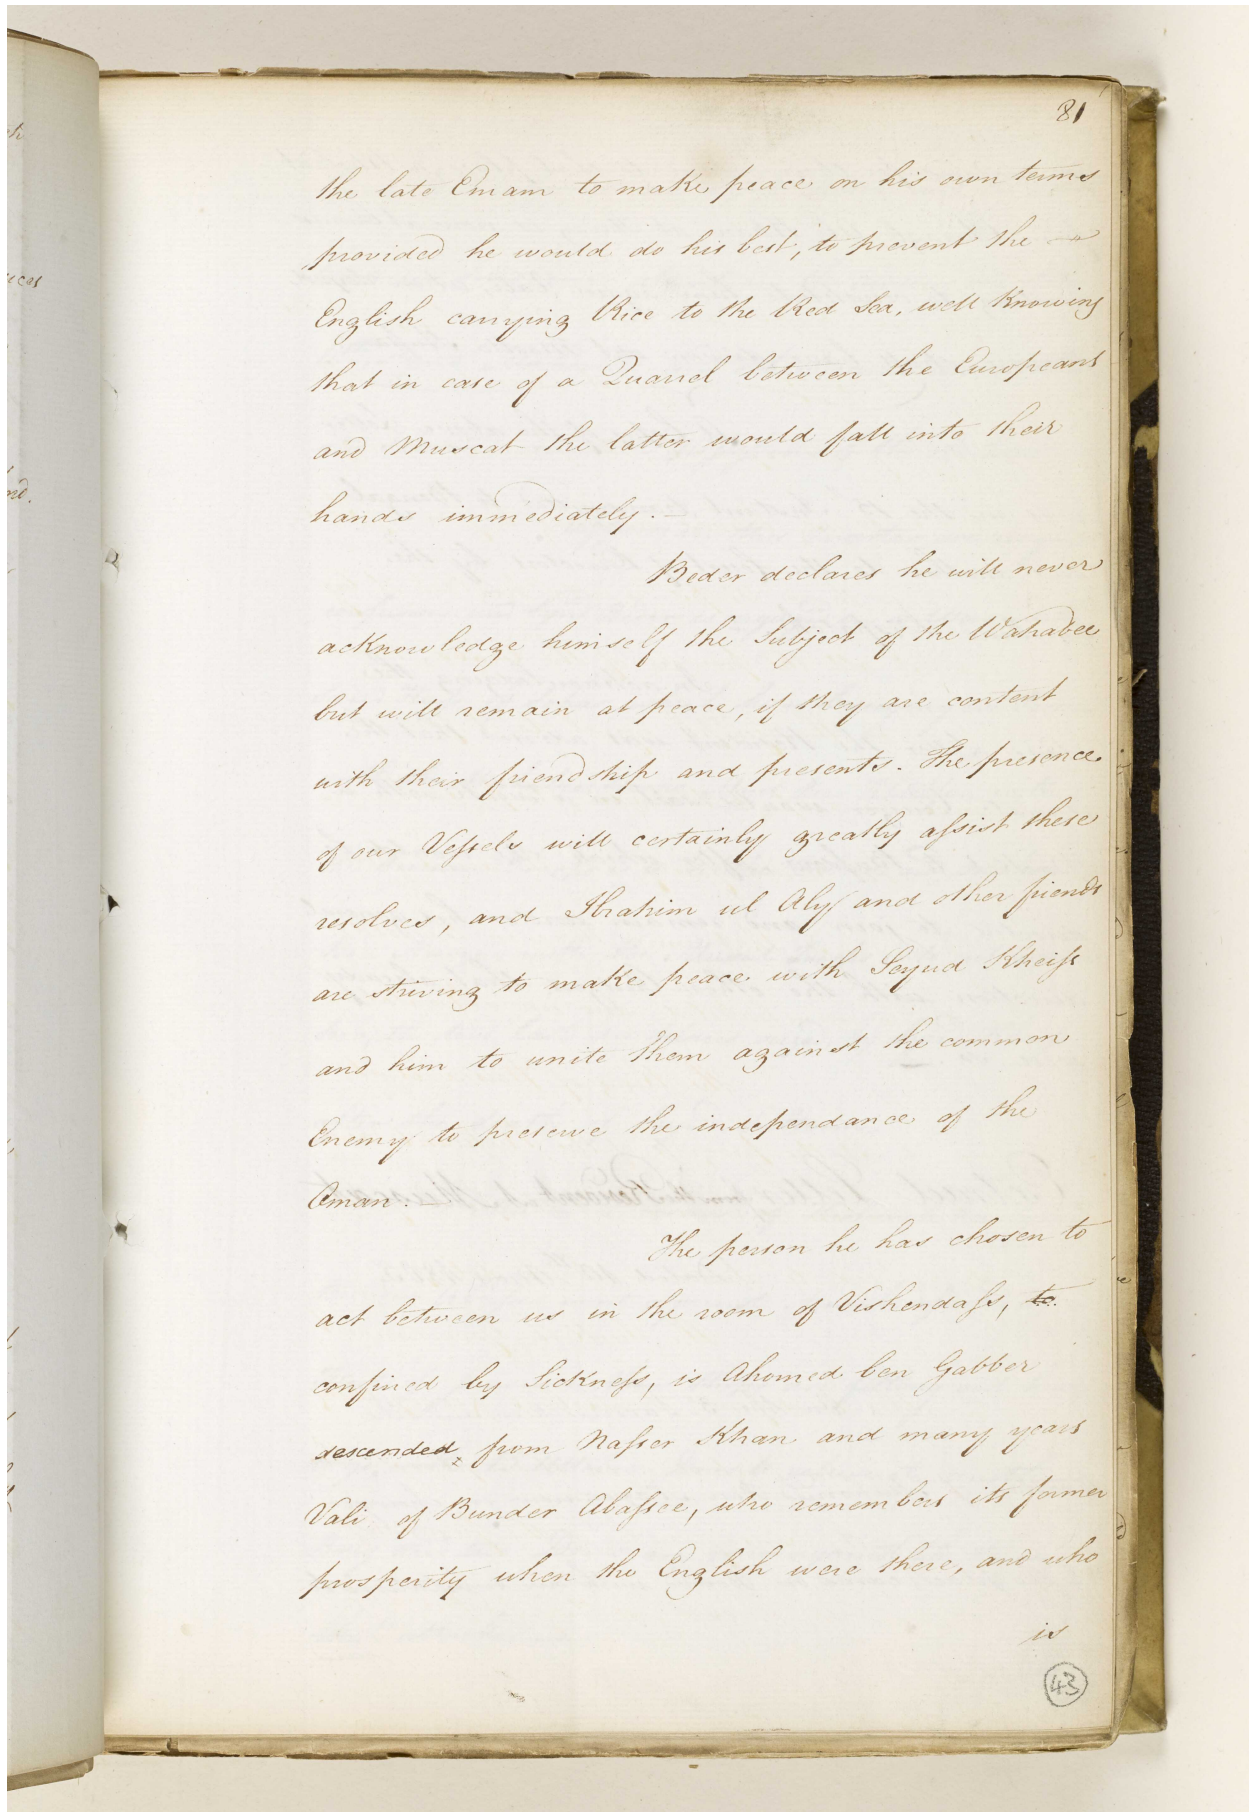 81
the late Emam to make peace on his own terms
provided he would do his best, to prevent the
English carrying Rice to the Red Sea, well Knowing
that in case of a Quarrel between the Europeans
and Muscat the latter would fall into their
hands immediately. —
Beder declares he will never
acknowledge himself the Subject of the Wahabee
but will remain at peace, if they are content
with their friendship and presents. The presence
of our Veſsels will certainly greatly aſsist these
resolves, and Ibrahim ul Aly and other friends
are striving to make peace with Seyud Kheiſs
and him to unite them against the common
Enemy to preserve the independance of the
Oman.
The person he has chosen to
act between us in the room of Vishendaſs, to
confined by Sickneſs, is Ahomed ben Gabber
descended from Naſser Khan and many years
Vali of Bunder Abaſsee, who remembers its former
prosperity when the English were there, and who
is
43